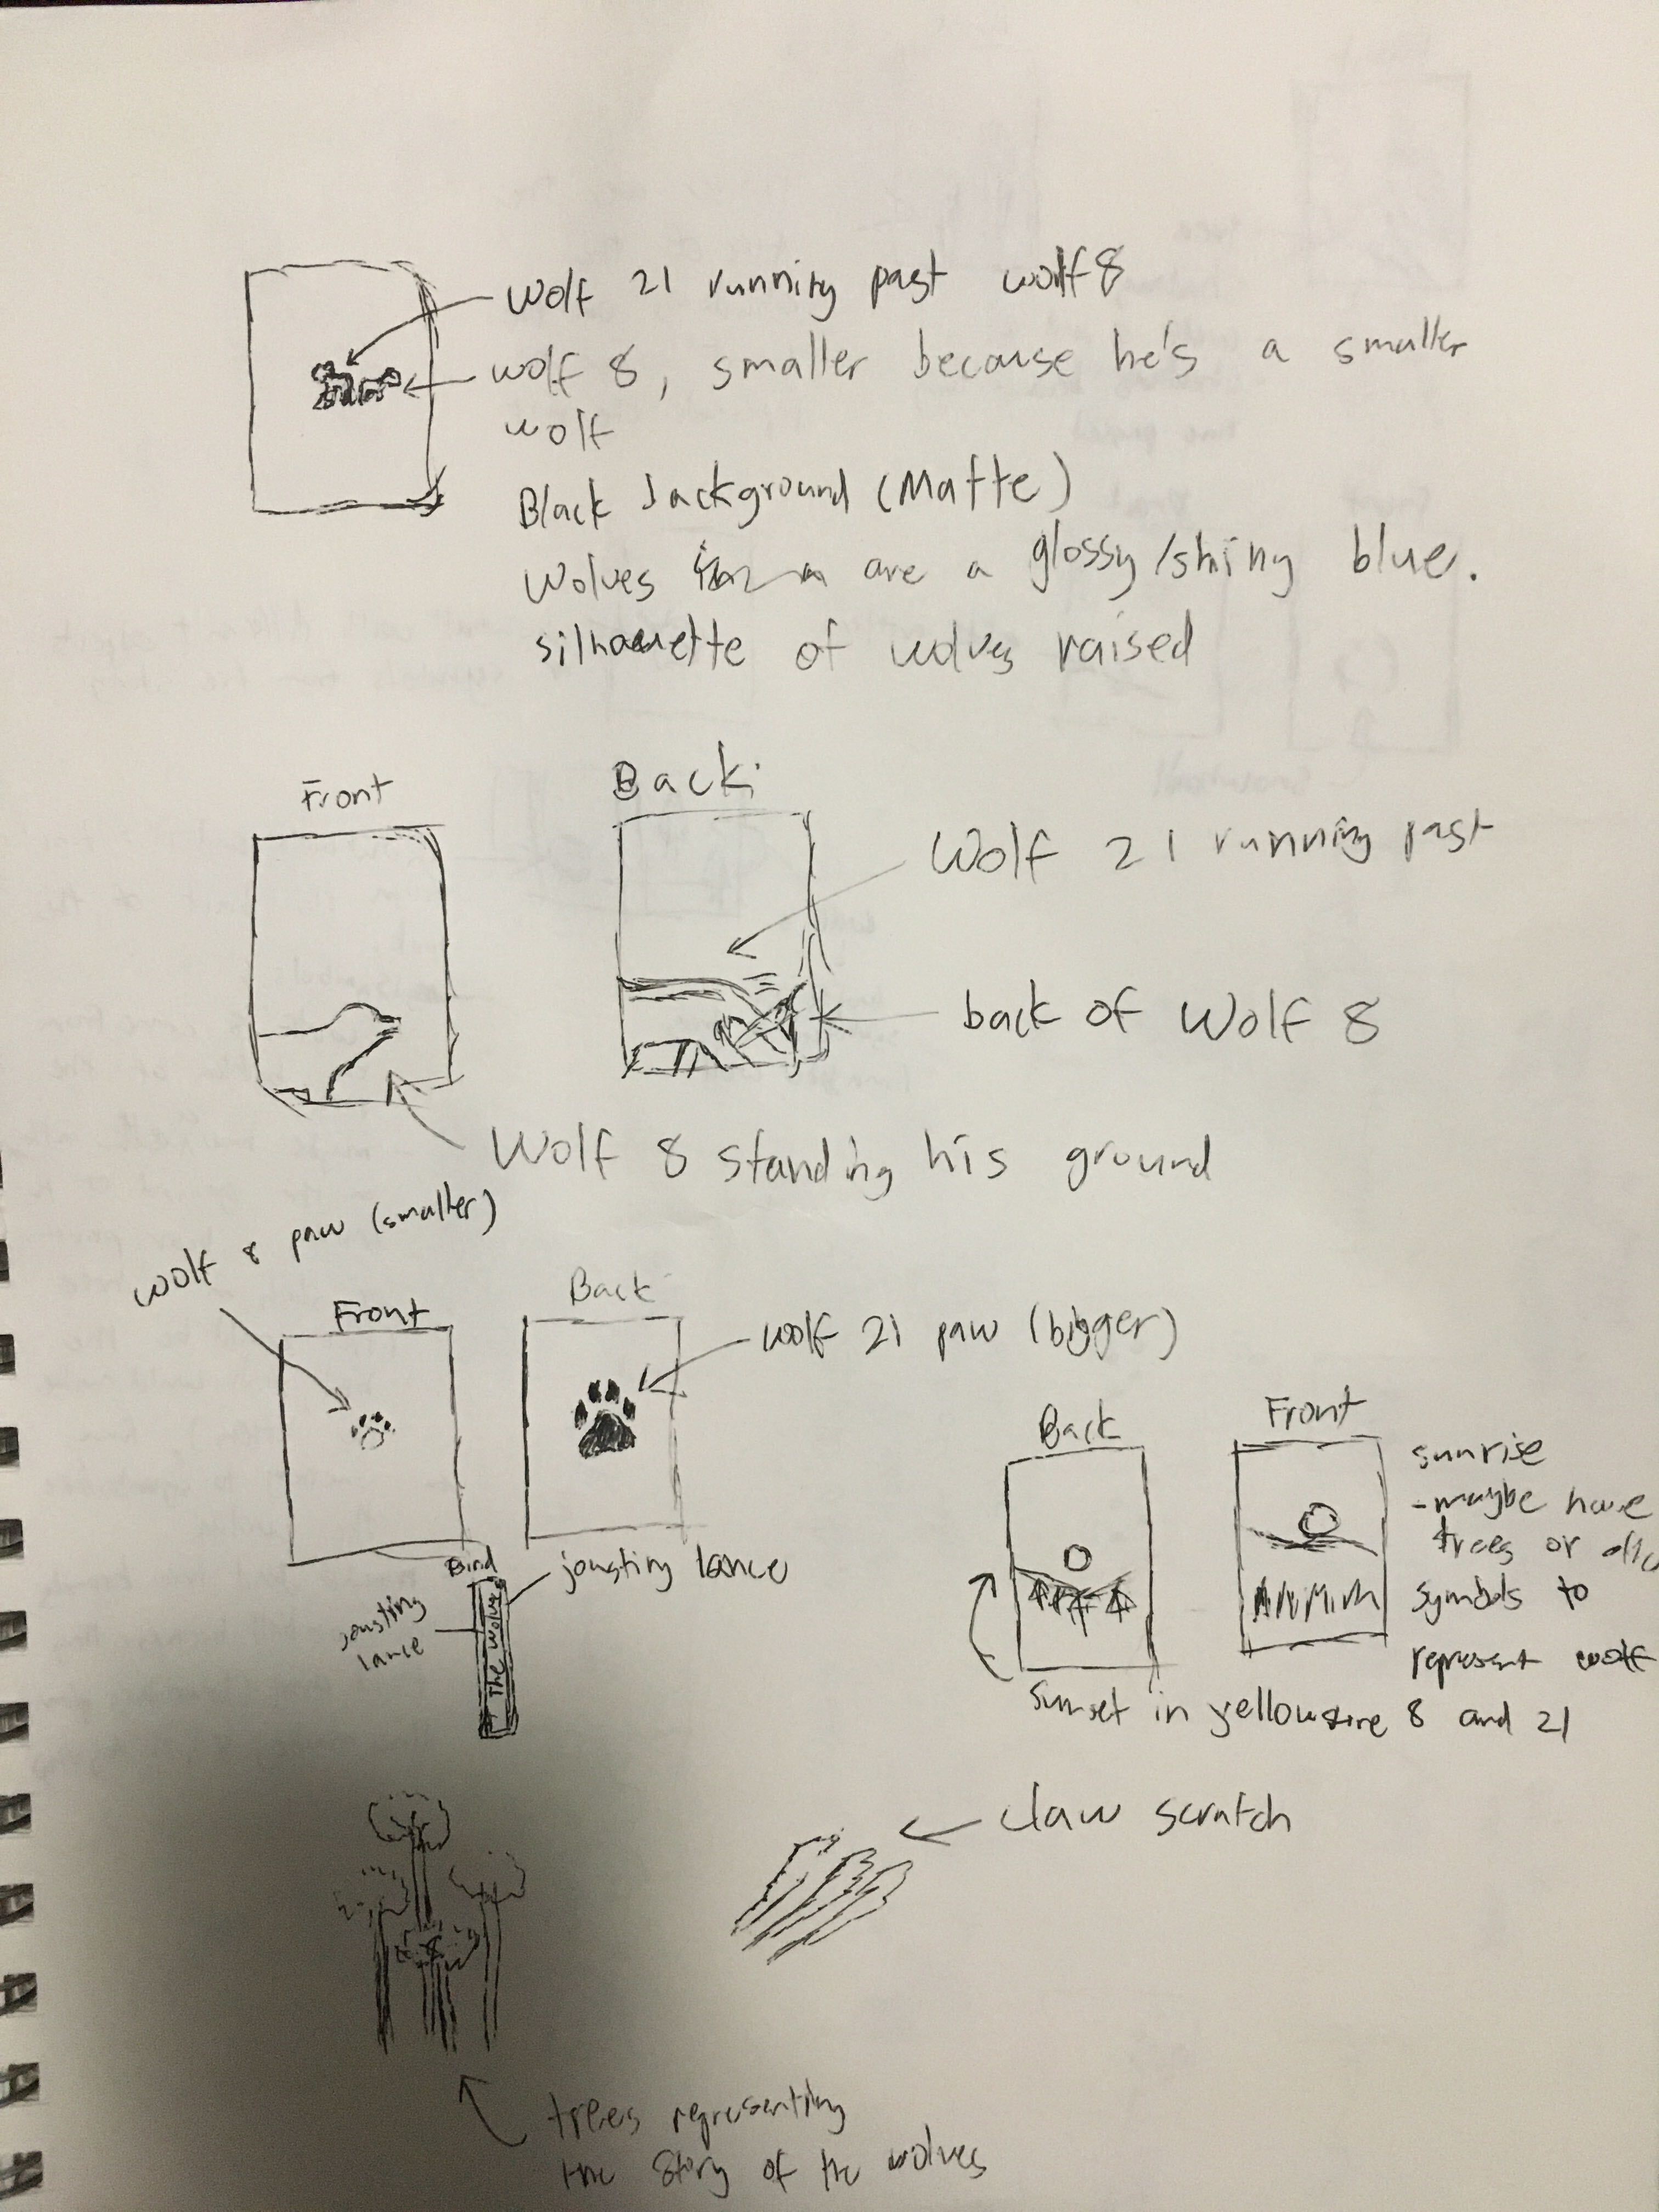 Wolf 21 running past wolf 8
wolf 8, smaller because he's a smaller
wolf
Black background (Matte)
Wolves are a glossy/shiny blue.
silhouette of wolves raised
Front
Back:
Wolf 21 running past
back of Wolf 8
Wolf 8 standing his ground
wolf 8 paw (smaller)
Front
Back
wolf 21 paw (bigger)
Back
Front
sunrise
-maybe have
trees or
symbols to
represent wolf
8 and 21
sunset in yellowstone
Bind
jousting lance
jousting
lance
The Wolves
claw scratch
trees representing
the story of the wolves